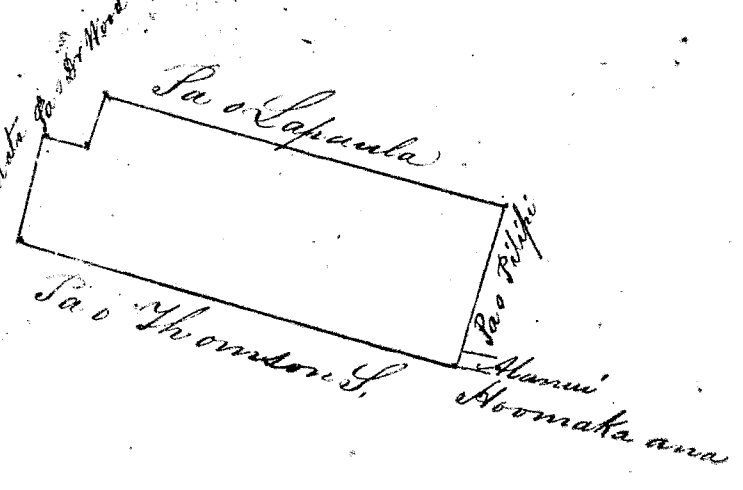 Pa o Dr Wood
Pa o Lapaula
Pa o Pilipi
Pa o Thomson S.
Alanui
Hoomaka ana